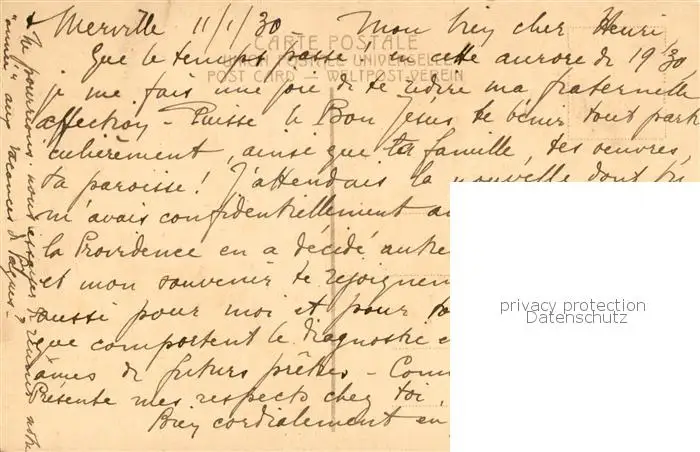 Merville 11/1/30 Mon bien cher Henri,
CARTE POSTALE
Que le temps passe ! en cette aurore de 1930
UNION POSTALE UNIVERSELLE
POST CARD — WELTPOST-VEREIN
je me fais une joie de te redire ma fraternelle
affection - Puisse le Bon Jésus te bénir tout parti
culièrement, ainsi que ta famille, tes oeuvres,
ta paroisse ! J'attendais la nouvelle dont tu
m'avais confidentiellement
la Providence en a décidé autre
et mon souvenir te rejoignen
aussi pour moi et pour
que comportent le diagnostic
âmes de futurs prêtres -
Présente mes respects chez toi,
Bien cordialement en
privacy protection
Datenschutz
Ne pourrions-nous essayer de notre
"année" aux vacances de Pâques ?